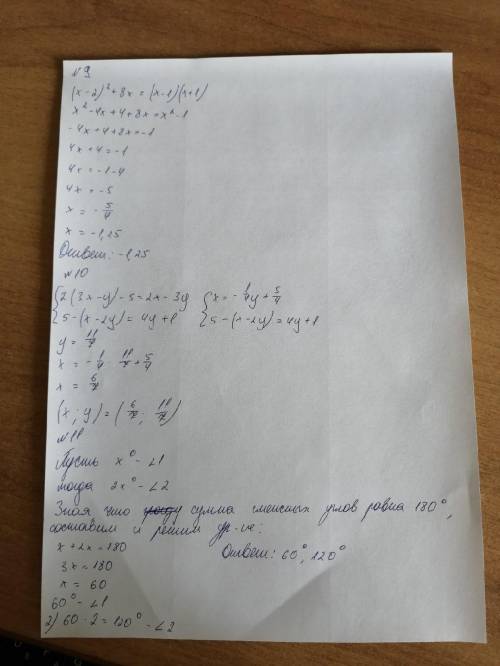 №9
(x-2)²+8x=(x-1)(x+1)
x²-4x+4+8x=x²-1
-4x+4+8x=-1
4x+4=-1
4x=-1-4
4x=-5
x=-5/4
x=-1,25
Ответ: -1,25
№10
{2(3x-y)-5=2x-3y {x=-1/4y+5/4
{5-(x-2y)=4y+1 {5-(x-2y)=4y+1
y=11/7
x=-1/4·11/7+5/4
x=6/7
(x;y)=(6/7;11/7)
№11
Пусть x°-∠1
тогда 2x°-∠2
Зная что сумма смежных углов равна 180°,
составим и решим ур-ие:
x+2x=180 Ответ: 60°, 120°
3x=180
x=60
60°-∠1
2) 60·2=120°-∠2